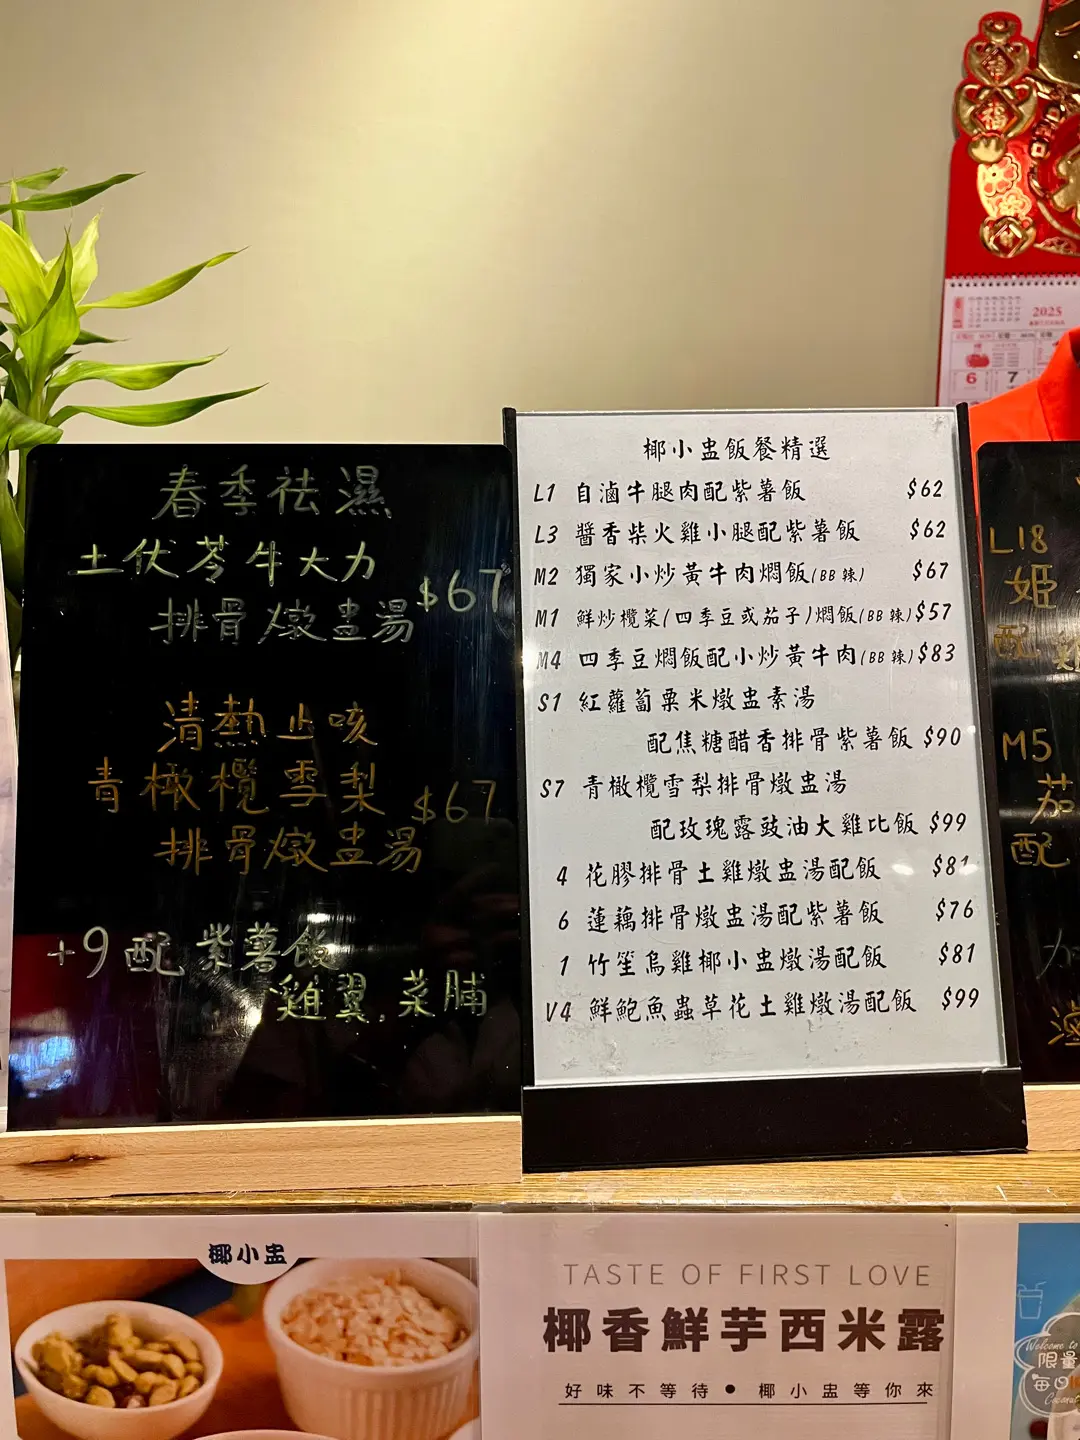 春季祛濕
土伏苓牛大力
排骨燉盅湯 $67
清熱止咳
青橄欖雪梨
排骨燉盅湯 $67
+9配紫薯飯
雞翼.菜脯
椰小盅飯餐精選
L1 自滷牛腿肉配紫薯飯 $62
L3 醬香柴火雞小腿配紫薯飯 $62
M2 獨家小炒黃牛肉燜飯(BB辣) $67
M1 鮮炒欖菜(四季豆或茄子)燜飯(BB辣) $57
M4 四季豆燜飯配小炒黃牛肉(BB辣) $83
S1 紅蘿蔔粟米燉盅素湯
配焦糖醋香排骨紫薯飯 $90
S7 青橄欖雪梨排骨燉盅湯
配玫瑰露豉油大雞比飯 $99
4 花膠排骨土雞燉盅湯配飯 $81
6 蓮藕排骨燉盅湯配紫薯飯 $76
1 竹笙烏雞椰小盅燉湯配飯 $81
V4 鮮鮑魚蟲草花土雞燉湯配飯 $99
L18
姬
配雞
M5
茄
配
福
2025
6 7
椰小盅
TASTE OF FIRST LOVE
椰香鮮芋西米露
好味不等待•椰小盅等你來
Welcome to
限量
每日
Coconut